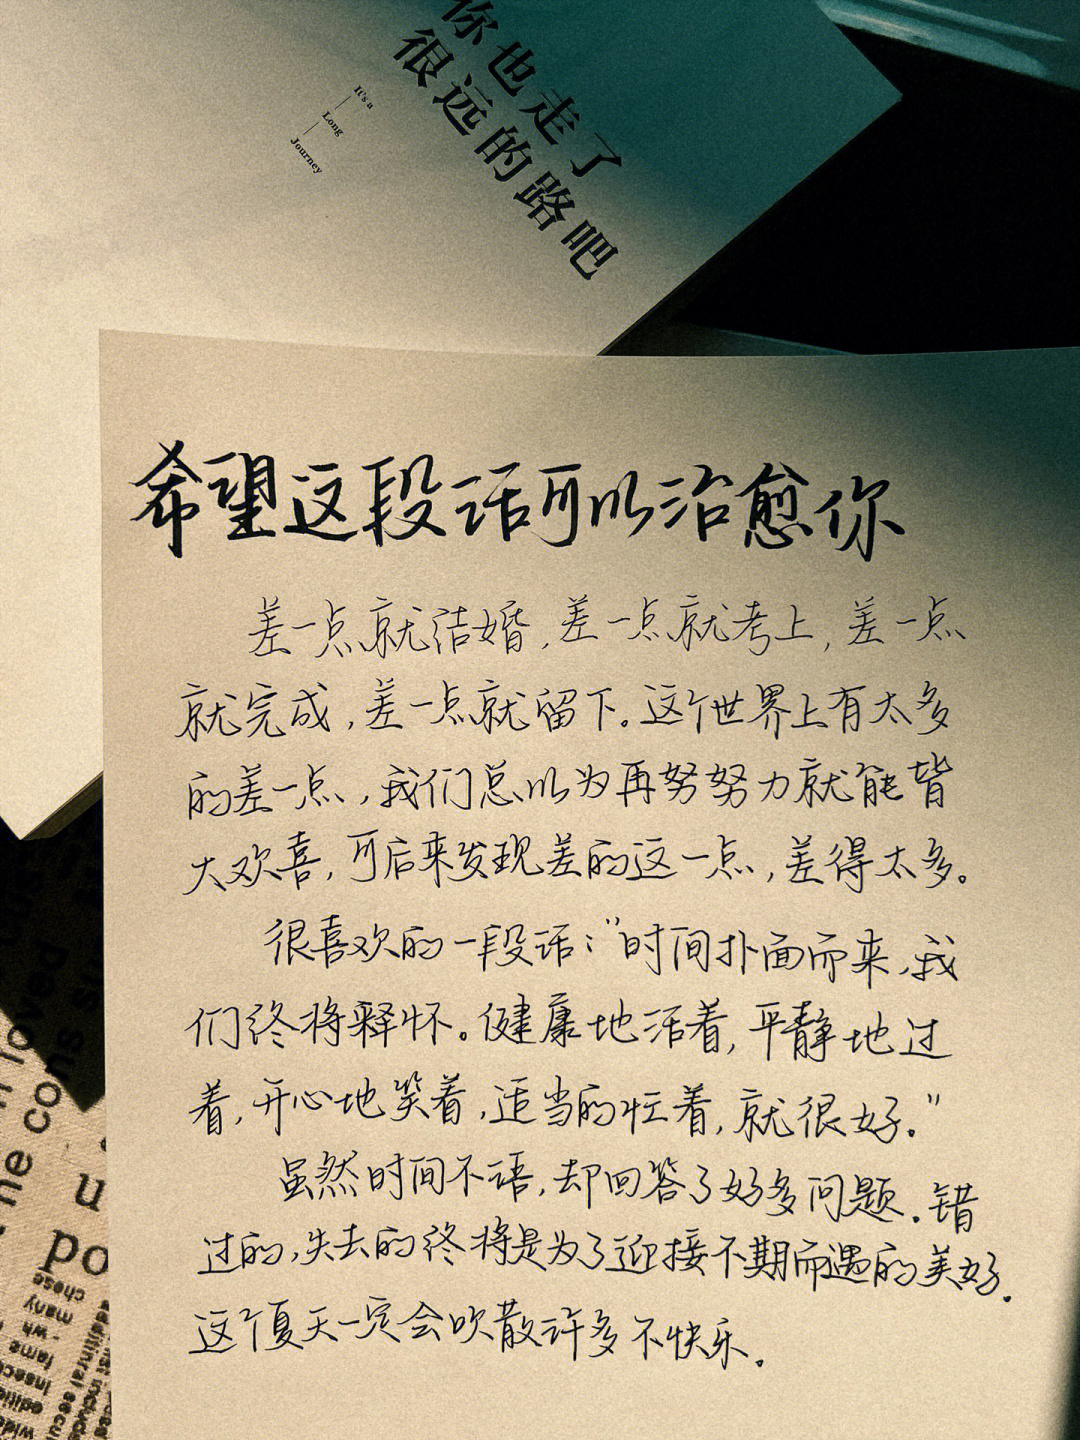 你也走了
很远的路吧
It's a
Long
Journey
希望这段话可以治愈你
差一点就结婚,差一点就考上,差一点
就完成,差一点就留下。这个世界上有太多
的差一点,我们总以为再努努力就能皆
大欢喜,可后来发现差的这一点,差得太多。
很喜欢的一段话:"时间扑面而来,我
们终将释怀。健康地活着,平静地过
着,开心地笑着,适当的忙着,就很好。"
虽然时间不语,却回答了好多问题.错
过的,失去的终将是为了迎接不期而遇的美好.
这个夏天一定会吹散许多不快乐。
loved
he cons
u
po
chose
many
- wh
fame
insec
editio
wide